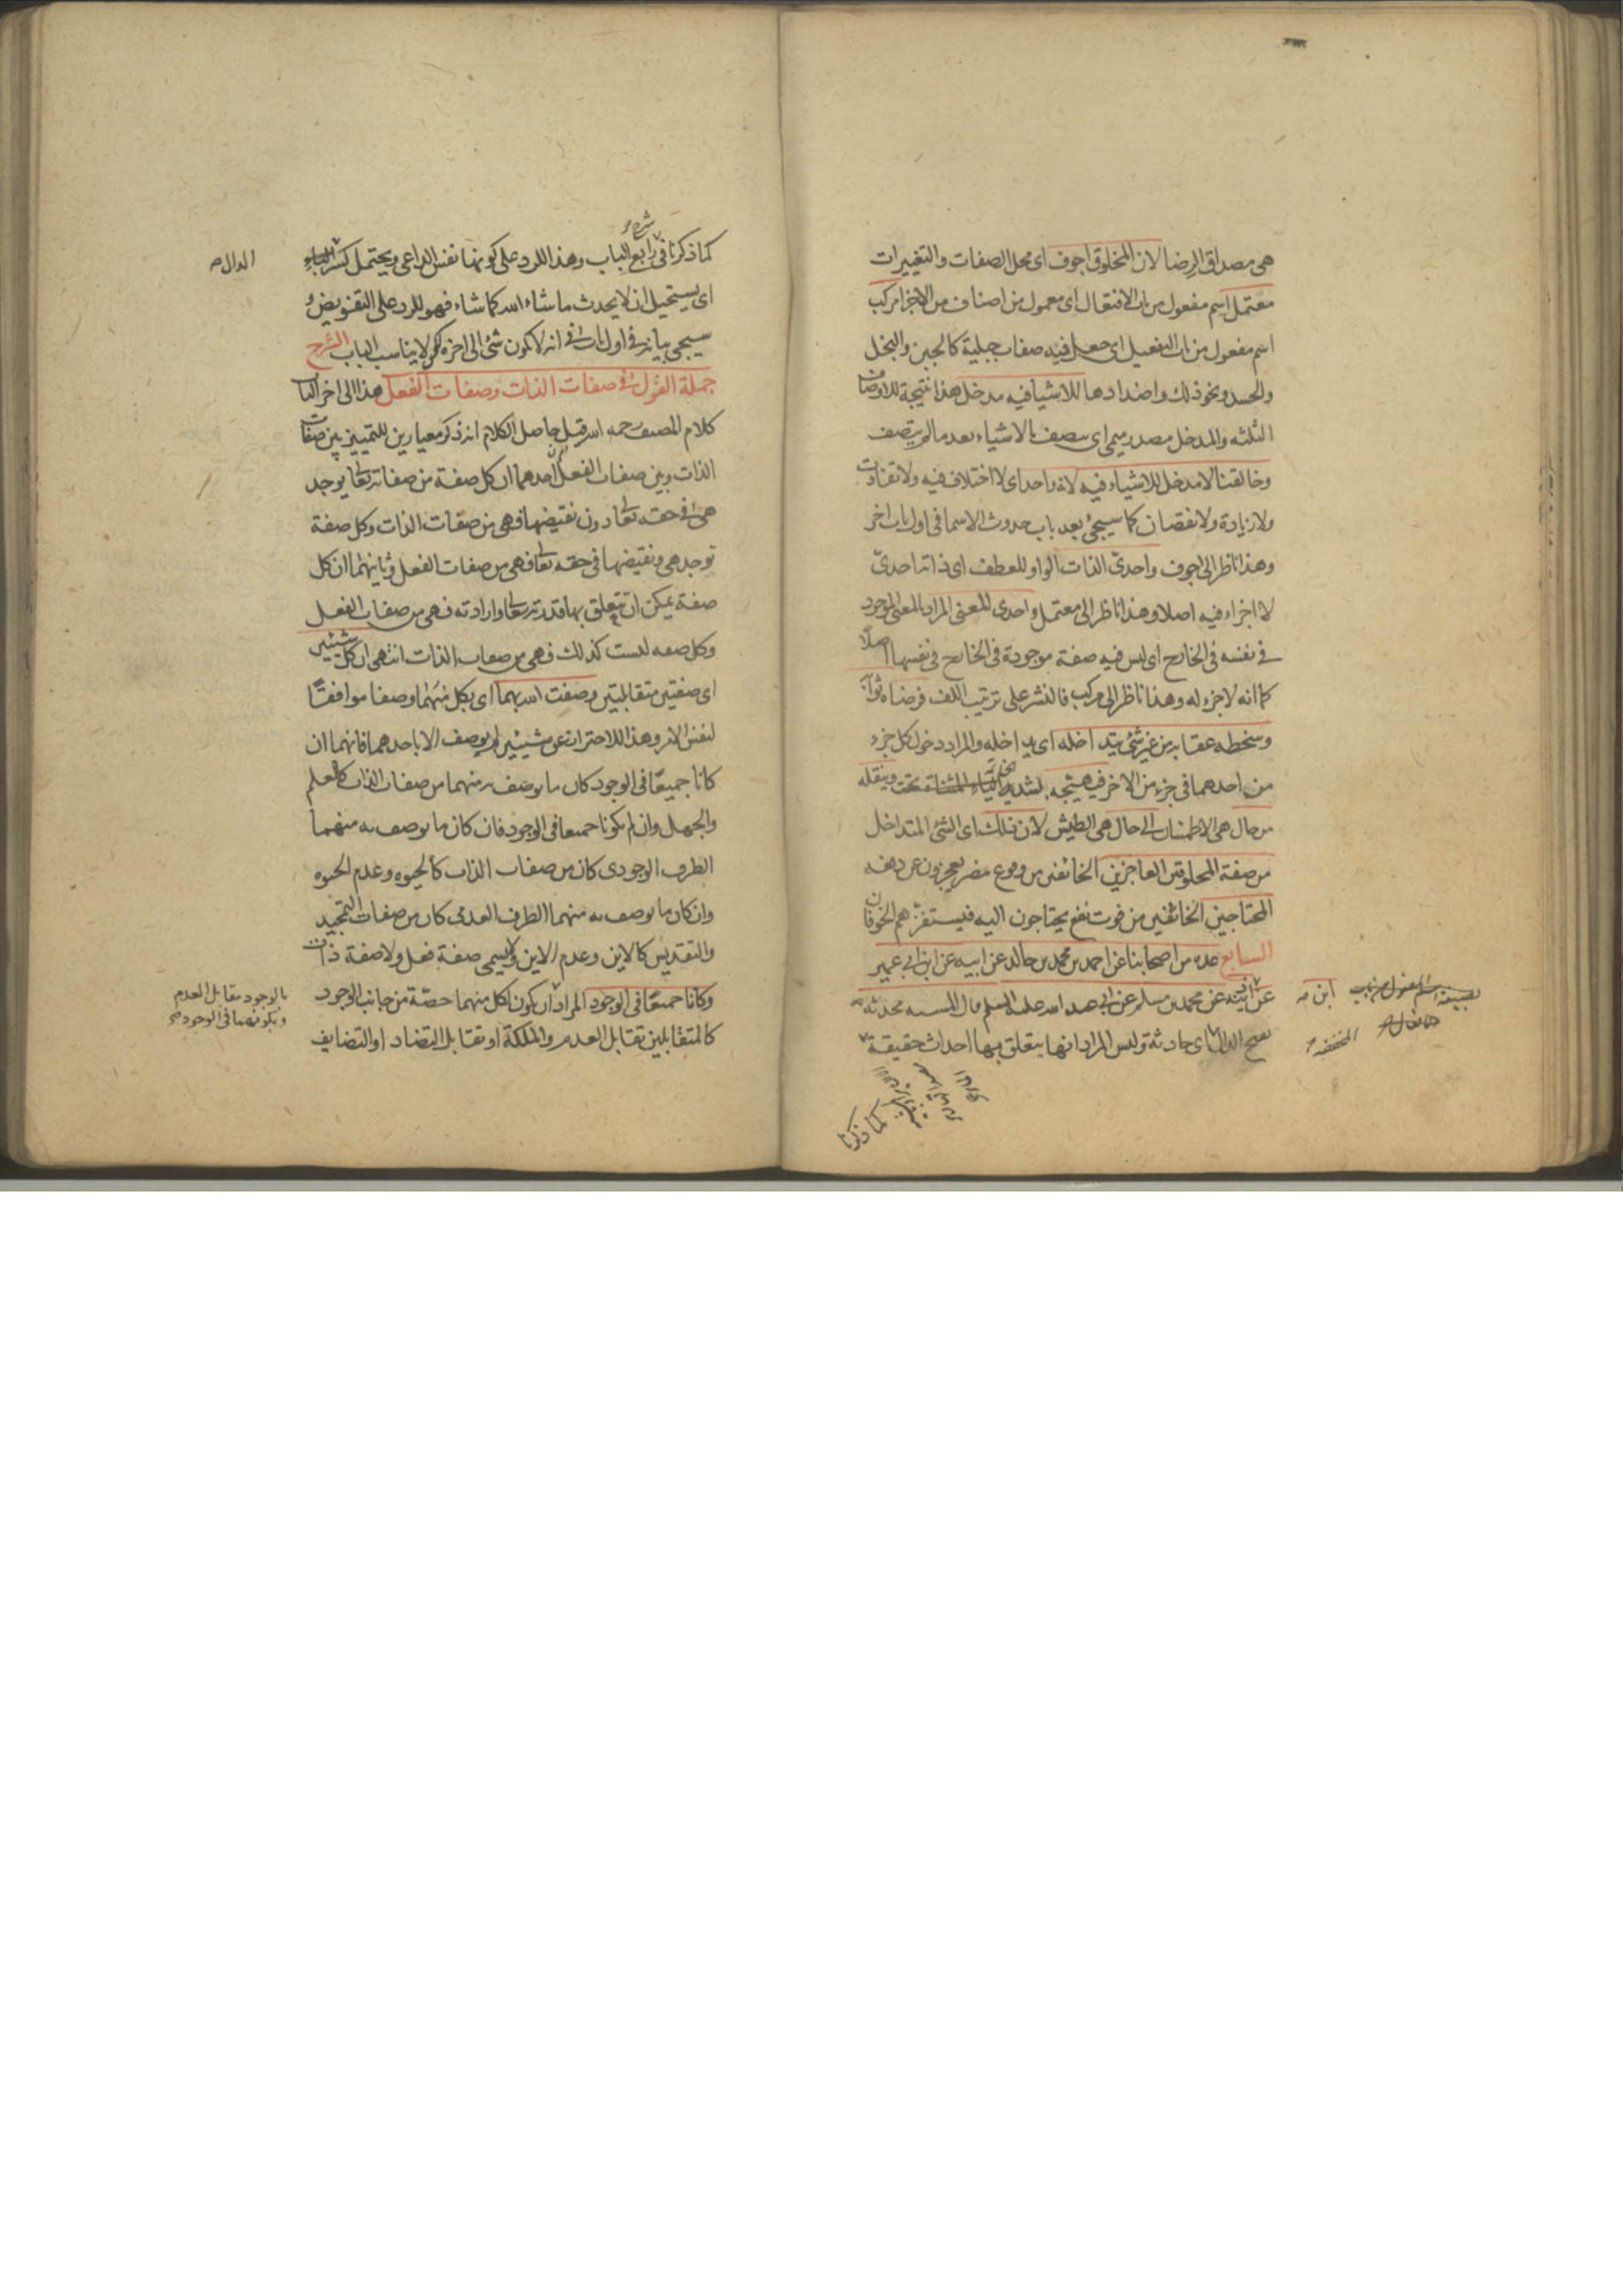 هى مصداق الرضا لان المخلوق اجوف اى محل الصفات والتغييرات
معتمل اسم مفعول من باب الافتعال اى معمول من اصناف من الاجزاء مركب
اسم مفعول من باب التفعيل اى جعل فيه صفات جبلية كالجبن والبخل
والحسد ونحو ذلك واضدادها للاشياء فيه مدخل هذا نتيجة للاوصاف
الثلثة والمدخل مصدر ميمى اى يتصف بالاشياء بعد مالم يتصف
وخالقنا لا مدخل للاشياء فيه لانه واحد اى لا اختلاف فيه ولا تفاوت
ولا زيادة ولا نقصان كما سيجئ بعد باب حدوث الاسماء فى اول باب اخر
وهذا ناظر الى اجوف واحدىّ الذات الواو للعطف اى ذاته احدىّ
لا اجزاء فيه اصلا وهذا ناظر الى معتمل واحدى المعنى المراد بالمعنى الموجود
فى نفسه فى الخارج اى ليس فيه صفة موجودة فى الخارج فى نفسها اصلًا
كما انه لا جزء له وهذا ناظر الى مركب فالنشر على ترتيب اللف فرضاه ثوابه
وسخطه عقابه من غير شئ يتداخله اى يداخله والمراد دخول كل جزء
من احدهما فى جزء من الاخر فيهيّجه بتشديد وينقله
من حال هى الاطمئنان الى حال هى الطيش لان ذلك اى الشئ المتداخل
من صفة المخلوقين العاجزين الخائفين من وقوع مضر يعجزون عن دفعه
المحتاجين الخائفين من فوت نفع يحتاجون اليه فيستفزهم الخوفان
السابع عدة من اصحابنا عن احمد بن محمد بن خالد عن ابيه عن ابن ابى عمير
عن اذينه عن محمد بن مسلم عن ابى عبد الله عليه السلم قال المشيه محدثه
بفتح الدال اى حادثة وليس المراد انها يتعلق بها احداث حقيقة
ابن
بصيغة اسم المفعول من باب
المخففه
كما ذكرنا
شرح
كما ذكرنا فى رابع الباب وهذا للرد على كونها نفس الداعى ويحتمل كسر
الدال
اى يستحيل ان لا يحدث ما شاء الله كما شاء فهو للرد على التفويض و
سيجى بيانه فى اول باب فى انه لا يكون شئ الى اخره لكن لا يناسب الباب الشرح
جملة القول فى صفات الذات وصفات الفعل هذا الى اخر الباب
كلام المصنف رحمه الله قيل حاصل الكلام انه ذكر معيارين للتمييز بين صفات
الذات وبين صفات الفعل احدهما ان كل صفة من صفاته تعا يوجد
هى فى حقه تعا دون نقيضها فهى من صفات الذات وكل صفة
توجد هى ونقيضها فى حقه تعا فهى من صفات الفعل وثانيهما ان كل
صفة يمكن ان تتعلق بها قدرته تعا وارادته فهى من صفات الفعل
وكل صفه ليست كذلك فهى من صفات الذات انتهى ان كل شيئين
اى صفتين متقابلتين وصفت الله بهما اى بكل منهما وصفا موافقًا
لنفس الامر وهذا للاحتراز عن شيئين لم يوصف الا باحدهما فانهما ان
كانا جميعًا فى الوجود كان ما يوصف به منهما من صفات الذات كالعلم
والجهل وان لم يكونا جميعا فى الوجود فان كان ما يوصف به منهما
الطرف الوجودى كان من صفات الذات كالحيوه وعدم الحيوه
وان كان ما يوصف به منهما الطرف العدمى كان من صفات التمجيد
والتقديس كالاين وعدم الاين ولا يسمى صفة فعل ولا صفة ذات
وكانا جميعًا فى الوجود المراد ان يكون لكل منهما حصّة من جانب الوجود
بالوجود مقابل العدم
وبكونهما فى الوجود
كالمتقابلين تقابل العدم والملكة او تقابل التضاد او التضايف